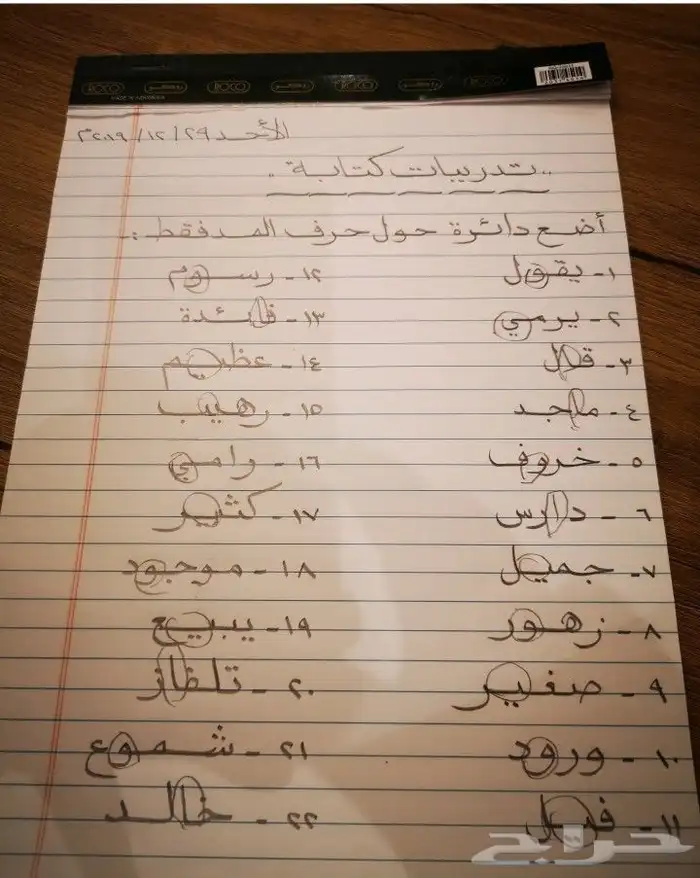 ROCO روكو ROCO روكو ROCO روكو ROCO
الأحد ٢٩/١٢/٢٠١٩م
.. تدريبات كتابة ..
أضع دائرة حول حرف المد فقط :-
١- يقول
٢- يرمي
٣- قال
٤- ماجد
٥- خروف
٦- دارس
٧- جميل
٨- زهور
٩- صغير
١٠- ورود
١١- فيل
١٢- رسوم
١٣- فائدة
١٤- عظيم
١٥- رهيب
١٦- رامي
١٧- كثير
١٨- موجود
١٩- يبيع
٢٠- تلفاز
٢١- شموع
٢٢- خالد
حراج